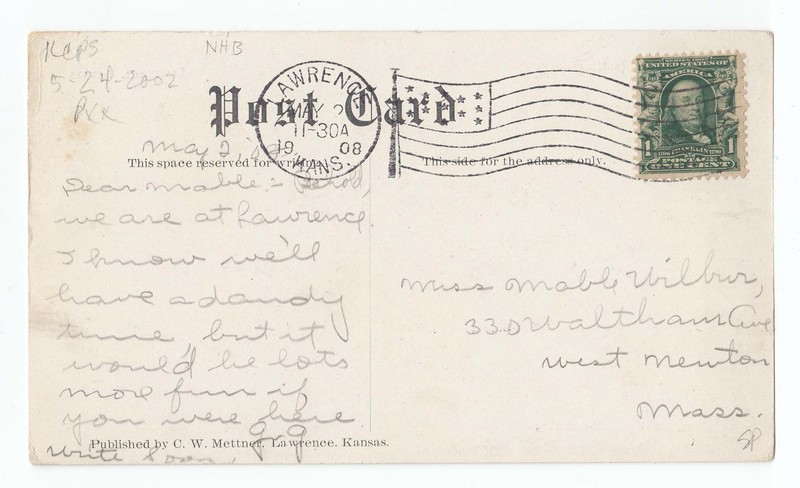 KCPS NHB
5-24-2002
LAWRENCE
MAY 2
11-30A
1908
KANS.
SERIES 1902
UNITED STATES OF
AMERICA
FRANKLIN
1
POSTAGE
ONE CENT
Post Card
This space reserved for writing
This side for the address only.
May 2,
Dear Mable:- Behold,
we are at Lawrence.
I know we'll
have a dandy
time, but it
would be lots
more fun if
you were here
G-G
Write soon.
Miss Mable Wilbur,
330 Waltham Ave
West Newton
Mass.
SP
Published by C. W. Mettner, Lawrence, Kansas.